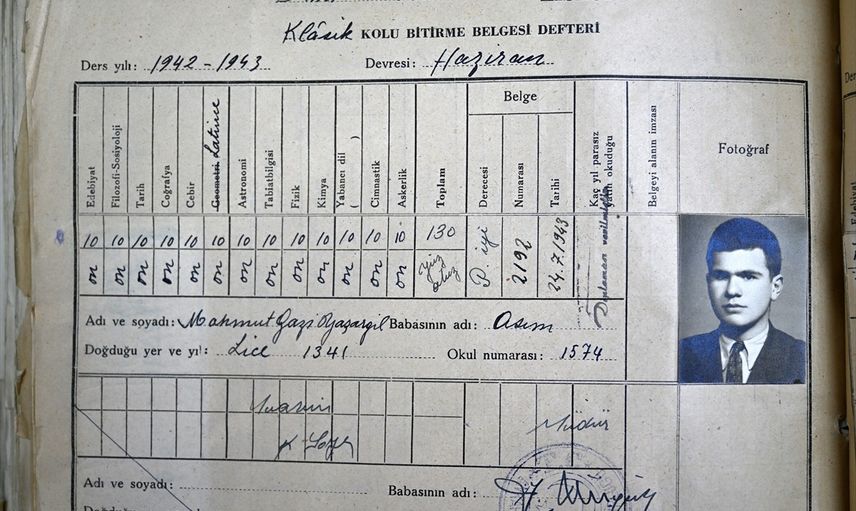 Klâsik KOLU BİTİRME BELGESİ DEFTERİ
Ders yılı: 1942-1943 Devresi: Haziran
Belge
Edebiyat Filozofi-Sosiyoloji Tarih Coğrafya Cebir Geometri Latince Astronomi Tabiatbilgisi Fizik Kimya Yabancı dil ( ) Cimnastik Askerlik Toplam Derecesi Numarası Tarihi Kaç yıl parasız yatılı okuduğu Belgeyi alanın imzası Fotoğraf
10 10 10 10 10 10 10 10 10 10 10 10 10 130 P. iyi 2192 24.7.1943
on on on on on on on on on on on on on yüz otuz
Adı ve soyadı: Mahmut Gazi Yaşargil Babasının adı: Asım
Doğduğu yer ve yıl: Lice 1341 Okul numarası: 1574
Muavin
Müdür
Adı ve soyadı: Babasının adı: